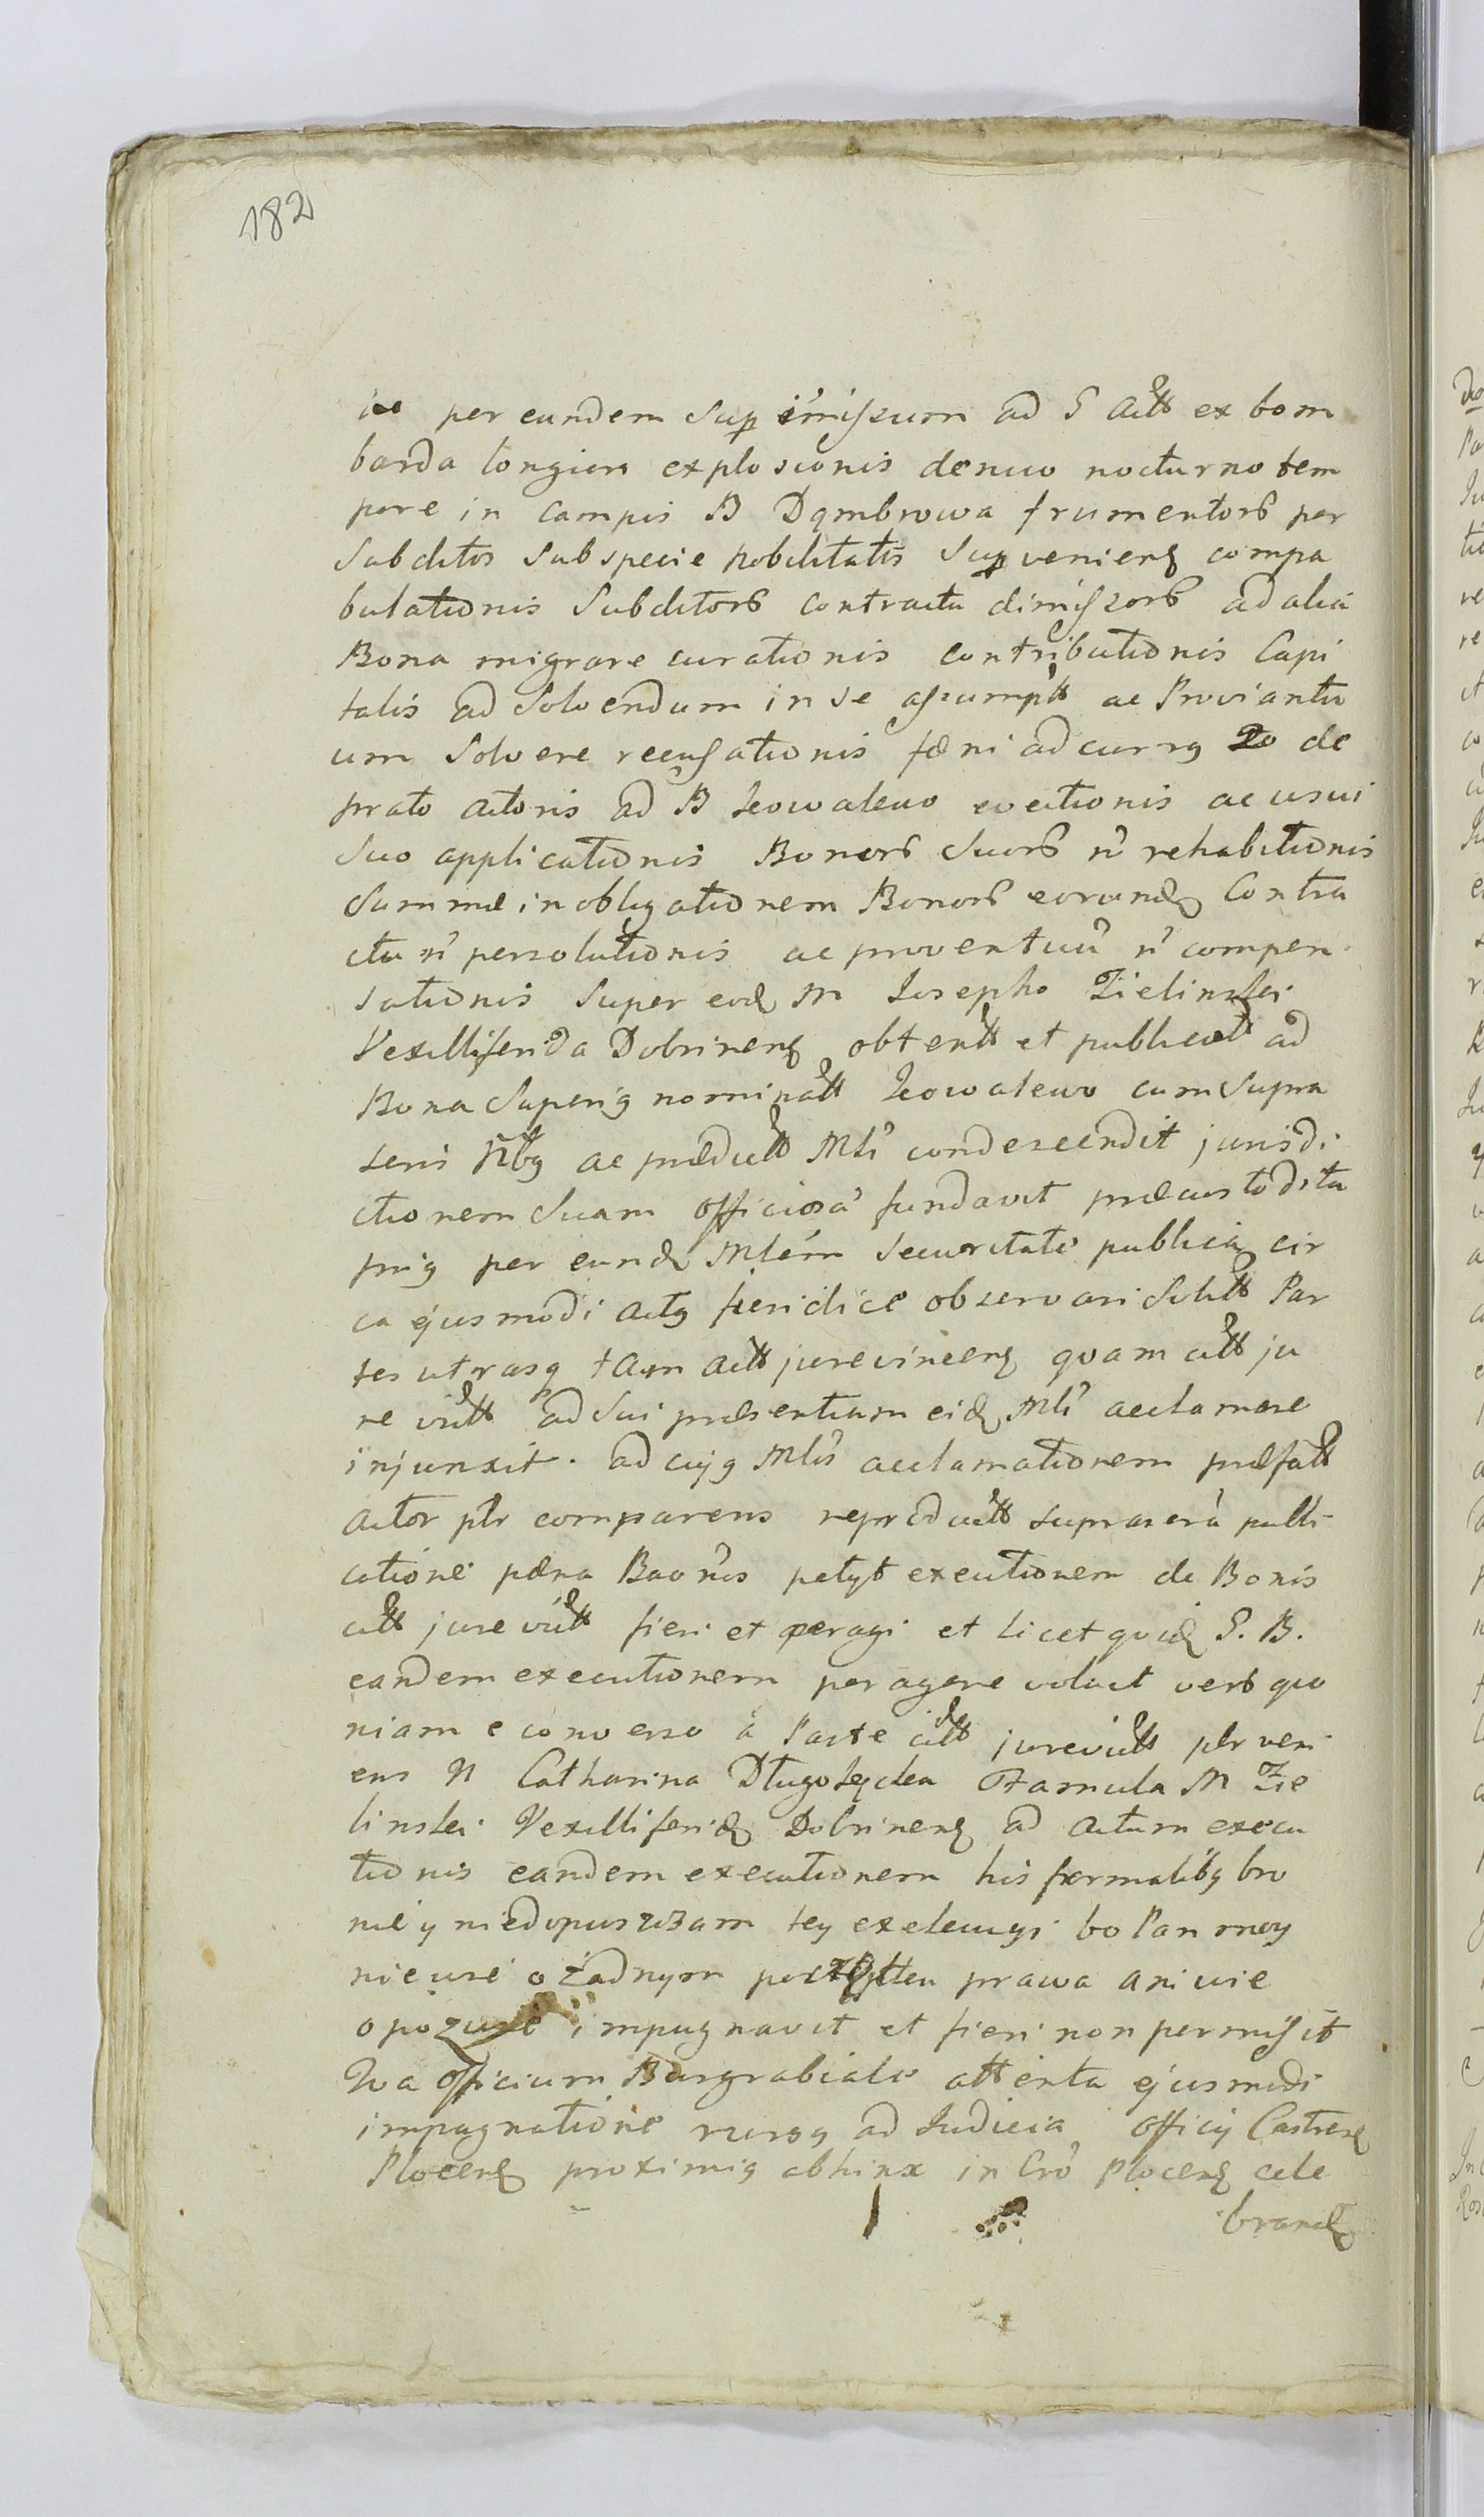 182
per eundem Sup immissum ad S Actt ex bom
barda longiori explosionis denuo nocturno tem
pore in Campis B Dąmbrowa frumentorb per
Subditos Sub specie nobilitatis Supvenienq compa
bulationis Subditorb contractu dimissorb ad alia
Bona migrare curationis contributionis Capi
talis ad Solvendum in se assumptt ac Proviantu
um Solvere recusationis fœni ad curr9 20 de
prato actoris ad B Kowalewo evectionis ac usui
Suo applicationis Bonorb Suorb n rehabitionis
Summæ in obligationem Bonorb eorundq Contra
ctu n persolutionis ac proventuu n compen
sationis Super eodq M Josepho Zielinski
Vexilliferida Dobrinenq obtentt et publicatt ad
Bona Superi9 nominatt Kowalewo cum Supra
scris Nlb9 ac prædictt Mli condescendit jurisdi
ctionem Suam officiosa fundavit præcustodita
pri9 per eundq Mlem Securitate publica cir
ca ejusmodi act9 juridice observari Solitt Par
tes utrasq tam actt jurevincenq quam citt ju
re victt ad Sui præsentiam eidq Mli acclamare
injunxit. ad cuj9 Mlis acclamationem præfatt
actor plr comparens reproductt suprascra publi
catione pœna Baonis petyt executionem de Bonis
citt jure victt fieri et peragi et licet quidq S. B.
eandem executionem peragere voluit verb quo
niam e converso a Parte citt jurevictt plr veni
ens N Catharina Długołęcka Famula M Zie
linski Vexilliferidq Dobrinenq ad actum execu
tionis eandem executionem his formalib9 bro
nię y niedopuszczam tey exekucyi bo Pan moy
niewie o żadnym prawa ani wie
o pozwie impugnavit et fieri non permisit
Ita officium Burgrabiale attenta ejusmodi
impugnatione rurs9 ad Judicia officij Castrenq
Plocenq proximi9 abhinx in Cro Plocenq cele
brandq